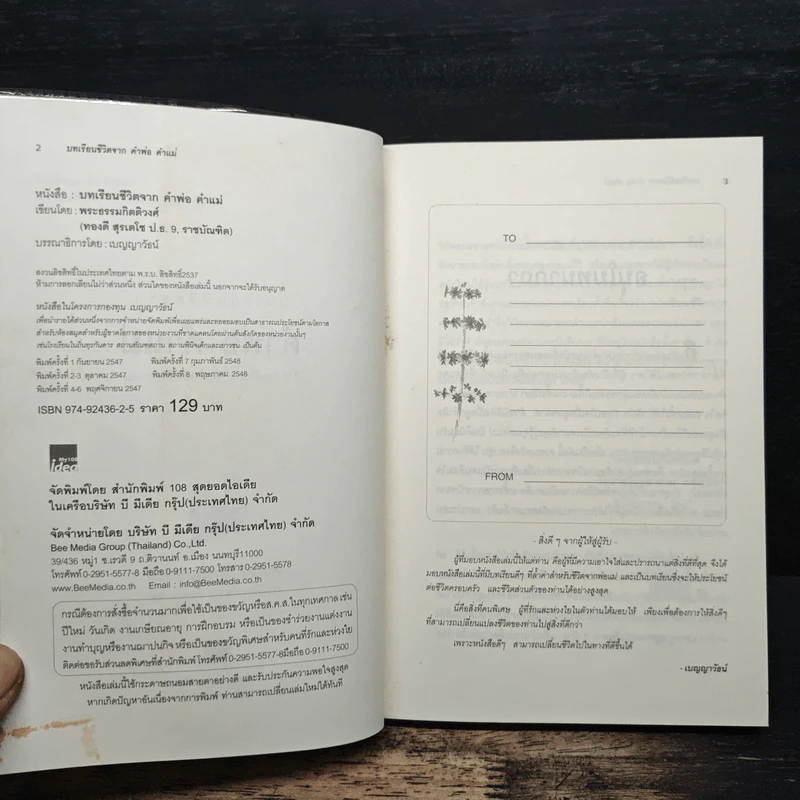 2 บทเรียนชีวิตจาก คำพ่อ คำแม่
หนังสือ : บทเรียนชีวิตจาก คำพ่อ คำแม่
เขียนโดย : พระธรรมกิตติวงศ์
(ทองดี สุรเตโช ป.ธ. 9, ราชบัณฑิต)
บรรณาธิการโดย : เบญญาวัธน์
สงวนลิขสิทธิ์ในประเทศไทยตาม พ.ร.บ. ลิขสิทธิ์2537
ห้ามการลอกเลียนไม่ว่าส่วนหนึ่ง ส่วนใดของหนังสือเล่มนี้ นอกจากจะได้รับอนุญาต
หนังสือในโครงการกองทุน เบญญาวัธน์
เพื่อนำรายได้ส่วนหนึ่งจากการจำหน่ายจัดพิมพ์เพื่อเผยแพร่และทยอยมอบเป็นสาธารณประโยชน์ตามโอกาส
สำหรับห้องสมุดสำหรับผู้ขาดโอกาสของหน่วยงานที่ขาดแคลนโดยผ่านต้นสังกัดของหน่วยงานนั้นๆ
เช่นโรงเรียนในถิ่นทุรกันดาร สถานทัณฑสถาน สถานพินิจเด็กและเยาวชน เป็นต้น
พิมพ์ครั้งที่ 1 กันยายน 2547 พิมพ์ครั้งที่ 7 กุมภาพันธ์ 2548
พิมพ์ครั้งที่ 2-3 ตุลาคม 2547 พิมพ์ครั้งที่ 8 พฤษภาคม 2548
พิมพ์ครั้งที่ 4-6 พฤศจิกายน 2547
ISBN 974-92436-2-5 ราคา 129 บาท
My108
idea
จัดพิมพ์โดย สำนักพิมพ์ 108 สุดยอดไอเดีย
ในเครือบริษัท บี มีเดีย กรุ๊ป(ประเทศไทย) จำกัด
จัดจำหน่ายโดย บริษัท บี มีเดีย กรุ๊ป(ประเทศไทย) จำกัด
Bee Media Group (Thailand) Co.,Ltd.
39/436 หมู่1 ซ.เรวดี 9 ถ.ติวานนท์ อ.เมือง นนทบุรี11000
โทรศัพท์ 0-2951-5577-8 มือถือ 0-9111-7500 โทรสาร 0-2951-5578
www.BeeMedia.co.th Email : info@BeeMedia.co.th
กรณีต้องการสั่งซื้อจำนวนมากเพื่อใช้เป็นของขวัญหรือส.ค.ส.ในทุกเทศกาล เช่น
ปีใหม่ วันเกิด งานเกษียณอายุ การฝึกอบรม หรือเป็นของชำร่วยงานแต่งงาน
งานทำบุญหรืองานฌาปนกิจ หรือเป็นของขวัญพิเศษสำหรับคนที่รักและห่วงใย
ติดต่อขอรับส่วนลดพิเศษที่สำนักพิมพ์ โทรศัพท์ 0-2951-5577-8มือถือ 0-9111-7500
หนังสือเล่มนี้ใช้กระดาษถนอมสายตาอย่างดี และรับประกันความพอใจสูงสุด
หากเกิดปัญหาอันเนื่องจากการพิมพ์ ท่านสามารถเปลี่ยนเล่มใหม่ได้ทันที
3
TO
FROM
- สิ่งดี ๆ จากผู้ให้สู่ผู้รับ -
ผู้ที่มอบหนังสือเล่มนี้ให้แด่ท่าน คือผู้ที่มีความเอาใจใส่และปรารถนาแต่สิ่งที่ดีที่สุด จึงได้
มอบหนังสือเล่มนี้ที่มีบทเรียนดีๆ ที่ล้ำค่าสำหรับชีวิตจากพ่อแม่ และเป็นบทเรียนซึ่งจะให้ประโยชน์
ต่อชีวิตครอบครัว และชีวิตส่วนตัวของท่านได้อย่างสูงสุด
นี่คือสิ่งที่คนพิเศษ ผู้ที่รักและห่วงใยในตัวท่านได้มอบให้ เพียงเพื่อต้องการให้สิ่งดีๆ
ที่สามารถเปลี่ยนแปลงชีวิตของท่านไปสู่สิ่งที่ดีกว่า
เพราะหนังสือดีๆ สามารถเปลี่ยนชีวิตไปในทางที่ดีขึ้นได้
- เบญญาวัธน์